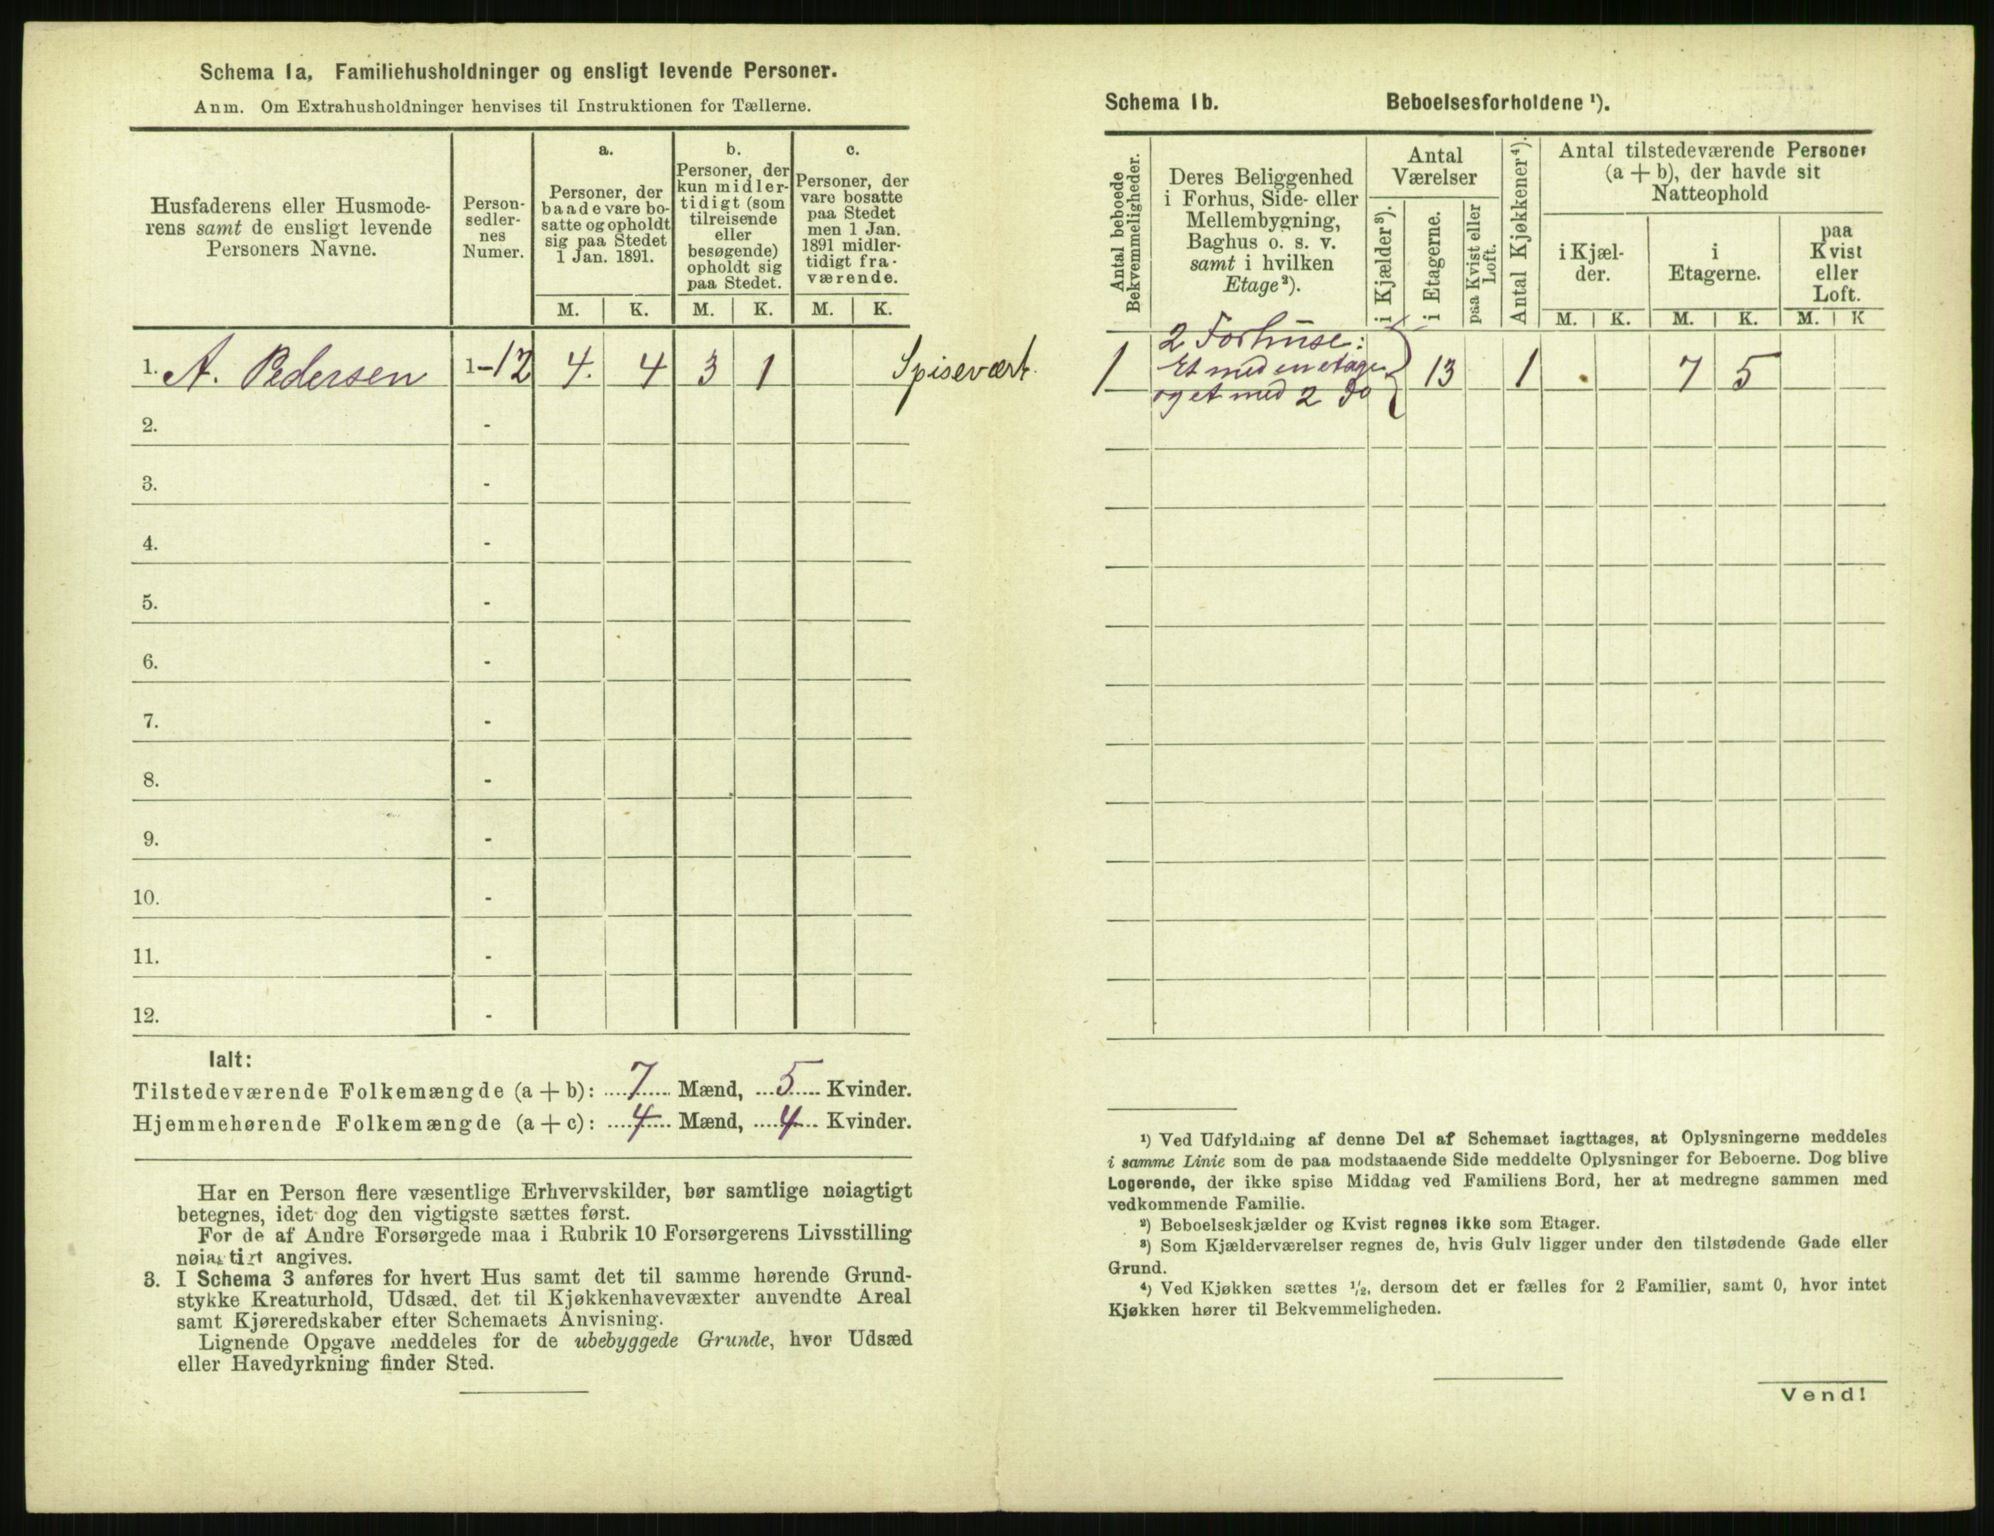 Schema 1a, Familiehusholdninger og ensligt levende Personer.
Anm. Om Extrahusholdninger henvises til Instruktionen for Tællerne.
Husfaderens eller Husmode-
rens samt de ensligt levende
Personers Navne.
Person-
sedler-
nes
Numer.
a.
Personer, der
baade vare bo-
satte og opholdt
sig paa Stedet
1 Jan. 1891.
b.
Personer, der
kun midler-
tidigt (som
tilreisende
eller
besøgende)
opholdt sig
paa Stedet.
c.
Personer, der
vare bosatte
paa Stedet
men 1 Jan.
1891 midler-
tidigt fra-
værende.
M. K. M. K. M. K.
1. A. Pedersen 1-12 4. 4 3 1 Spisevært.
2. -
3. -
4. -
5. -
6. -
7. -
8. -
9. -
10. -
11. -
12. -
Ialt:
Tilstedeværende Folkemængde (a + b): 7 Mænd, 5 Kvinder.
Hjemmehørende Folkemængde (a + c): 4 Mænd, 4 Kvinder.
Har en Person flere væsentlige Erhvervskilder, bør samtlige nøiagtigt
betegnes, idet dog den vigtigste sættes først.
For de af Andre Forsørgede maa i Rubrik 10 Forsørgerens Livsstilling
nøiagtigt angives.
3. I Schema 3 anføres for hvert Hus samt det til samme hørende Grund-
stykke Kreaturhold, Udsæd, det til Kjøkkenhavevæxter anvendte Areal
samt Kjøreredskaber efter Schemaets Anvisning.
Lignende Opgave meddeles for de ubebyggede Grunde, hvor Udsæd
eller Havedyrkning finder Sted.
Schema 1b. Beboelsesforholdene ¹).
Antal beboede
Bekvemmeligheder.
Deres Beliggenhed
i Forhus, Side- eller
Mellembygning,
Baghus o. s. v.
samt i hvilken
Etage²).
Antal
Værelser
i Kjælder³).
i Etagerne.
paa Kvist eller
Loft.
Antal Kjøkkener⁴).
Antal tilstedeværende Personer
(a + b), der havde sit
Natteophold
i Kjæl-
der.
i
Etagerne.
paa
Kvist
eller
Loft.
M. K. M. K. M. K
2 Forhuse:
1 Et med en etage 13 1 . 7 5
og et med 2 do
¹) Ved Udfyldning af denne Del af Schemaet iagttages, at Oplysningerne meddeles
i samme Linie som de paa modstaaende Side meddelte Oplysninger for Beboerne. Dog blive
Logerende, der ikke spise Middag ved Familiens Bord, her at medregne sammen med
vedkommende Familie.
²) Beboelseskjælder og Kvist regnes ikke som Etager.
³) Som Kjælderværelser regnes de, hvis Gulv ligger under den tilstødende Gade eller
Grund.
⁴) Ved Kjøkken sættes ½, dersom det er fælles for 2 Familier, samt 0, hvor intet
Kjøkken hører til Bekvemmeligheden.
Vend!